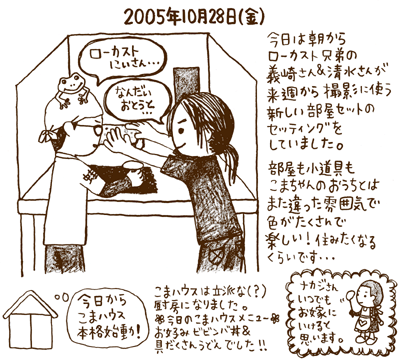 2005年10月28日(金)
ローカスト
にいさん･･･
なんだい
おとうと･･･
今日は朝から
ローカスト兄弟の
義崎さん&清水さんが
来週から撮影に使う
新しい部屋セットの
セッティングを
していました。
部屋も小道具も
こまちゃんのおうちとは
また違った雰囲気で
色がたくさんで
楽しい!住みたくなる
くらいです･･･
今日から
こまハウス
本格始動!
こまハウスは立派な(?)
厨房になりました。
今日のこまハウスメニュー
お好みビビンバ丼&
具だくさんうどんでした!!
ナカジさん
いつでも
お嫁に
いけると
思います。